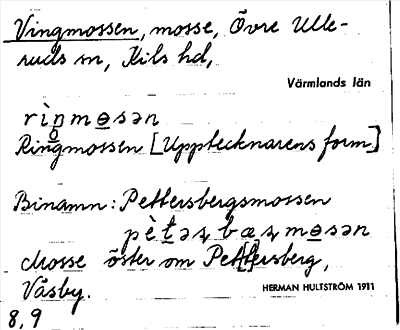 Vingmossen, mosse, Övre Ulle-
ruds sn, Kils hd,
Värmlands län
rìŋmosən
Ringmossen [Upptecknarens form]
Binamn: Pettersbergsmossen
pètəʂbæʂmosən
Mosse öster om Pet[t]ersberg,
Väsby.
HERMAN HULTSTRÖM 1911
8,9